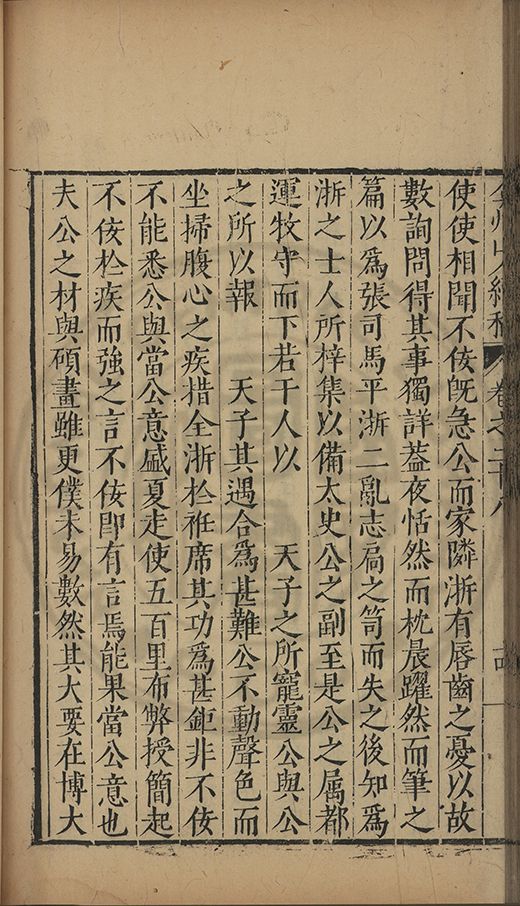 弇州山人續稿 卷之二十八
使使相聞不佞既急公而家隣浙有唇齒之憂以故
數詢問得其事獨詳葢夜恬然而枕晨躍然而筆之
篇以爲張司馬平浙二亂志扃之笥而失之後知爲
浙之士人所梓集以備太史公之副至是公之属都
運牧守而下若干人以 天子之所寵靈公與公
之所以報 天子其遇合爲甚難公不動聲色而
坐掃腹心之疾措全浙於袵席其功爲甚鉅非不佞
不能悉公與當公意盛夏走使五百里布弊授簡起
不佞於疾而強之言不佞即有言焉能果當公意也
夫公之材與碩畫雖更僕未易數然其大要在博大